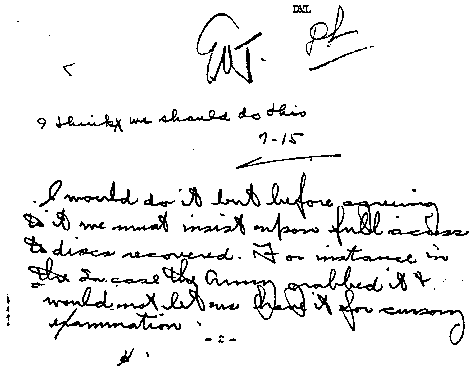 I think we should do this
7-15
I would do it but before agreeing
to it we must insist upon full access
to discs recovered. For instance in
the case the Army grabbed it &
would not let us have it for cursory
examination.
-2-
H.